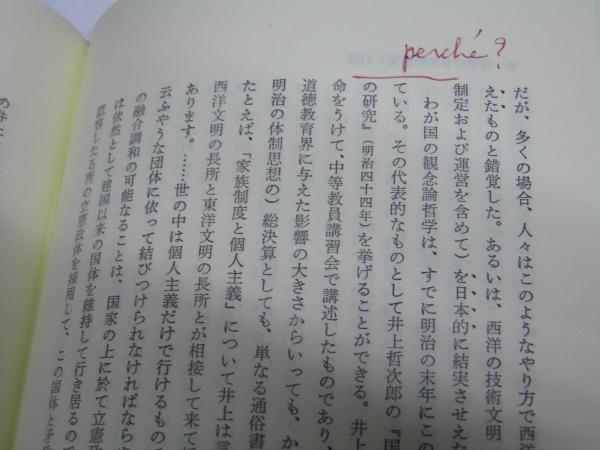 perché?
だが、多くの場合、人々はこのようなやり方で西洋
えたものと錯覚した。あるいは、西洋の技術文明
制定および運営を含めて)を日本的に結実させえた
わが国の観念論哲学は、すでに明治の末年にこの
ている。その代表的なものとして井上哲次郎の『国
の研究』(明治四十四年)を挙げることができる。井
命をうけて、中等教員講習会で講述したものであり、
道徳教育界に与えた影響の大きさからいっても、か
明治の体制思想の)総決算としても、単なる通俗書
たとえば、「家族制度と個人主義」について井上は言
西洋文明の長所と東洋文明の長所とが相接して来て
あります。……世の中は個人主義だけで行けるもので
云ふやうな団体に依って結びつけられなければならぬ
の融合調和の可能なることは、国家の上に於て立憲
は依然として建国以来の国体を維持して行き居るので
認容したる所の立憲政体を採用して、この国体と矛盾